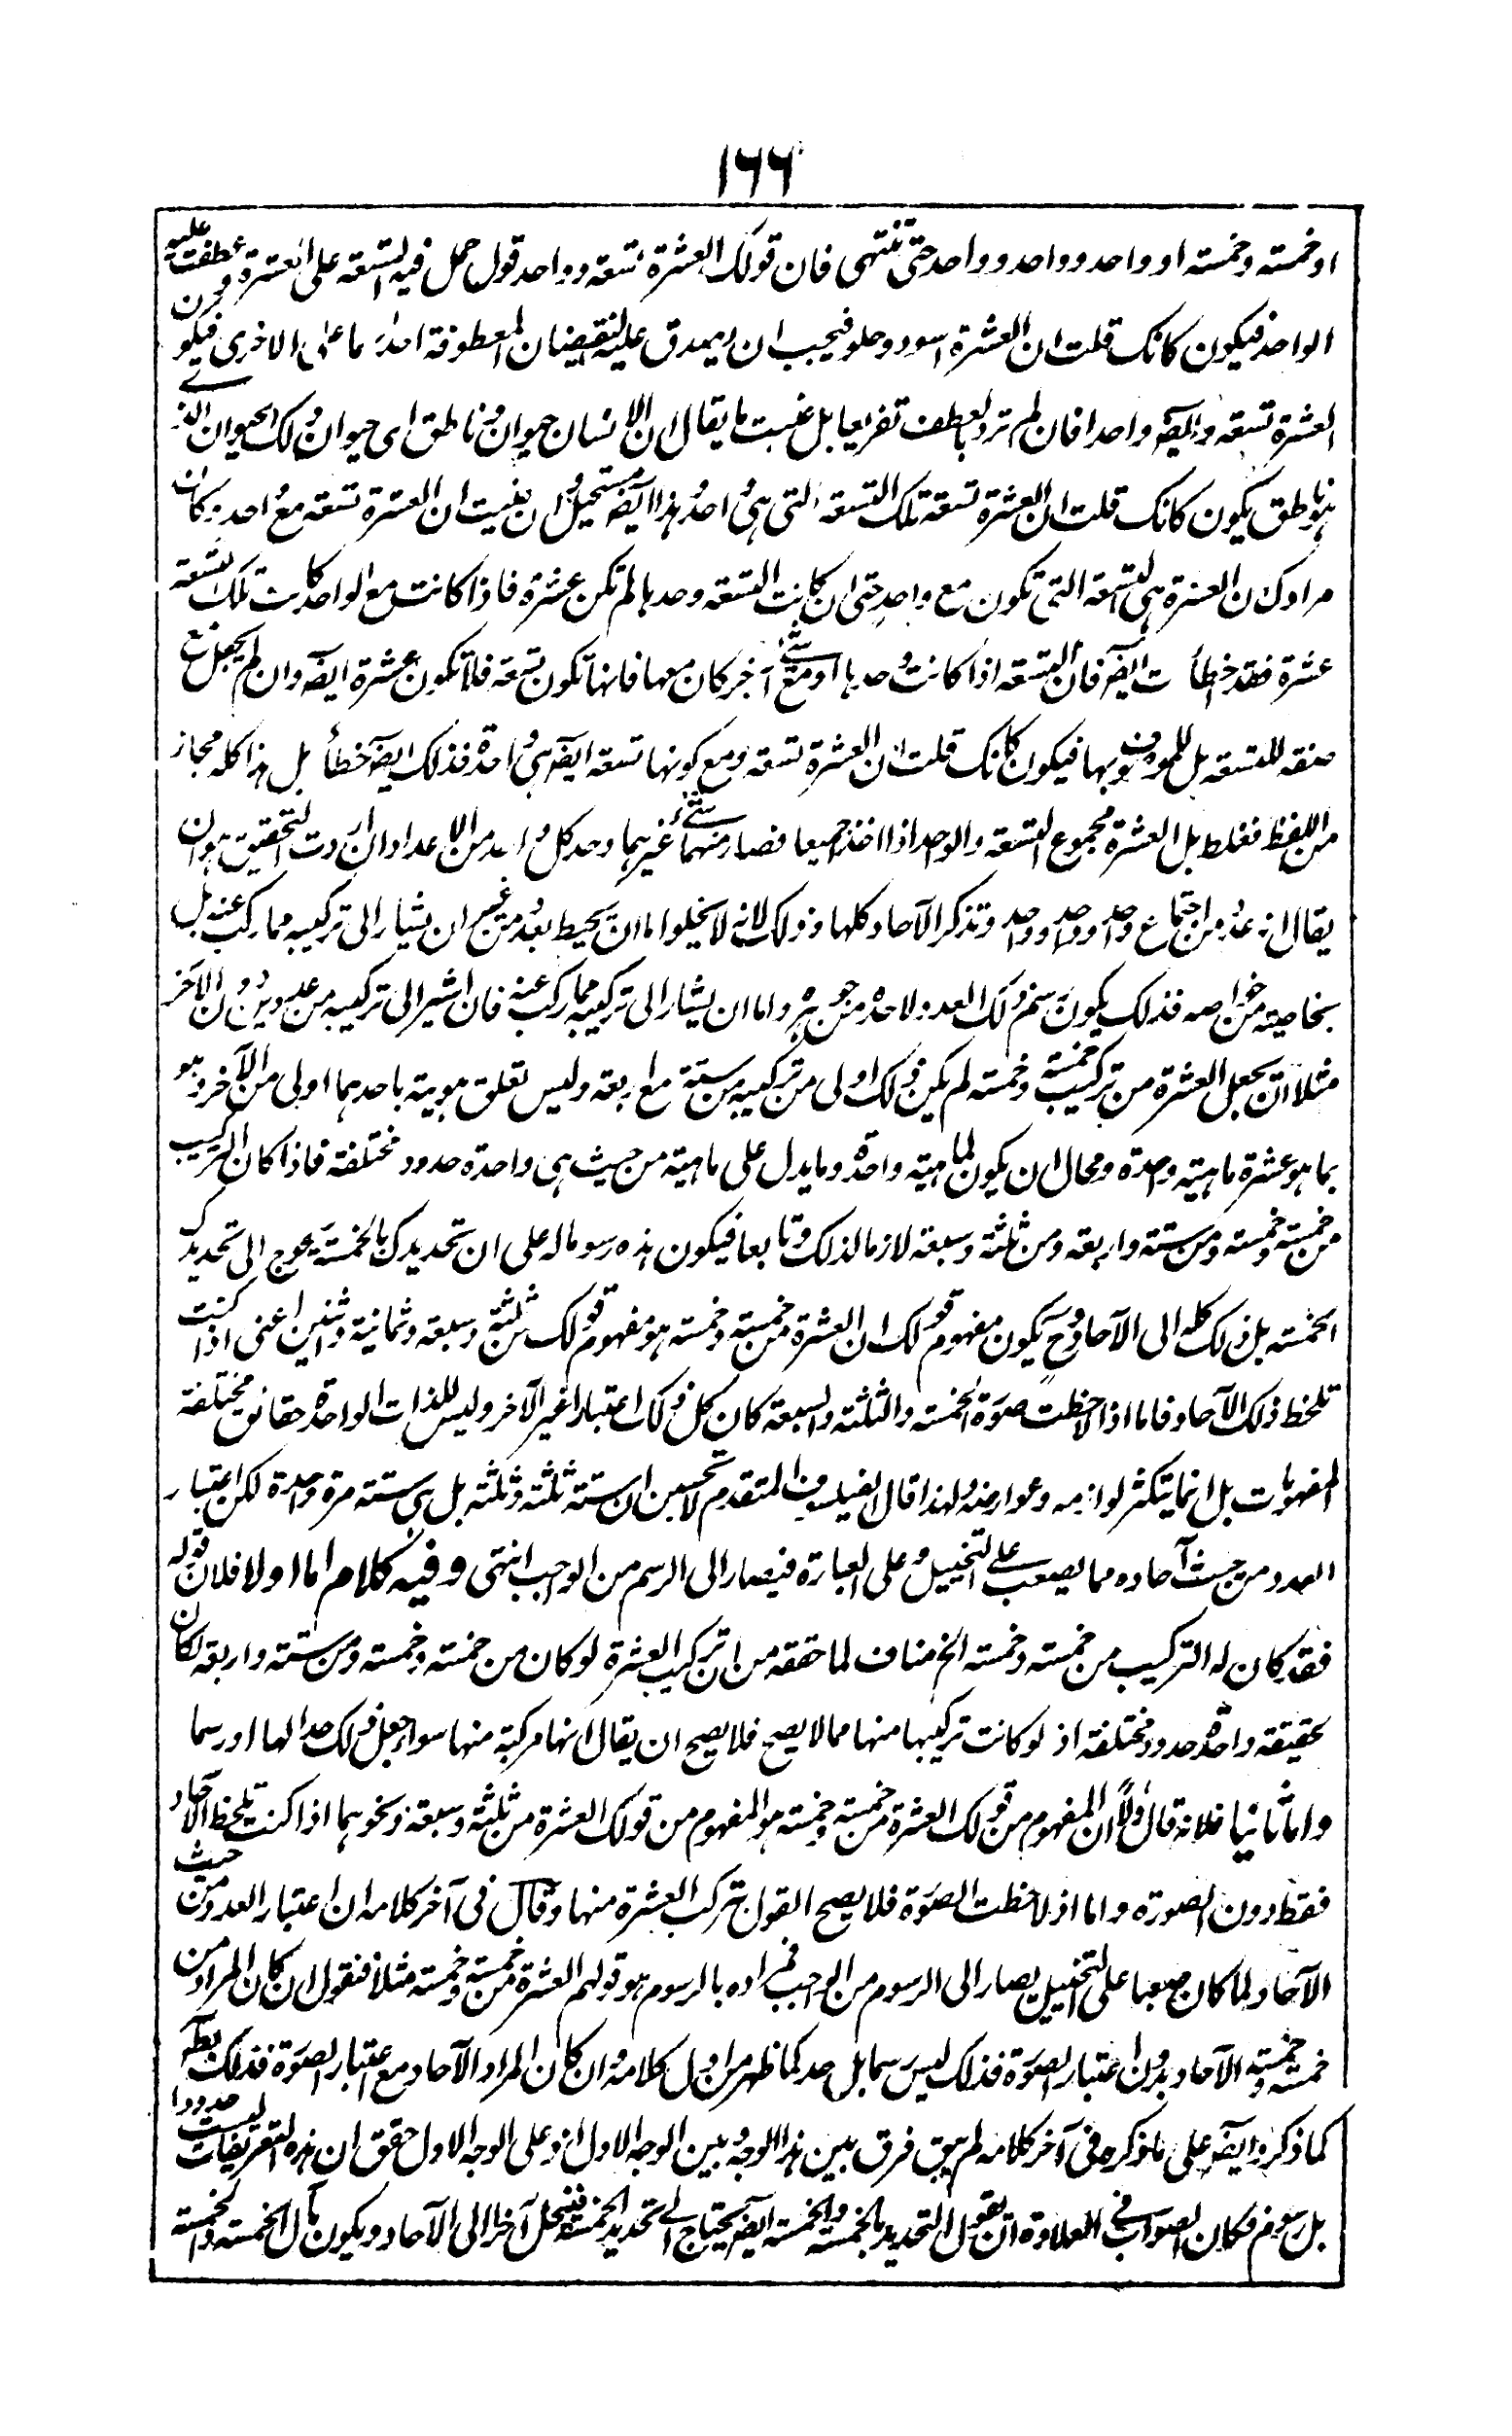 ١٦٦
او خمسته و خمسته او واحد و واحد و واحد حتى تنتهى فان قولك العشرة تسعة و واحد قول حمل فيه التسعة على العشرة و عطفت عليه
الواحد فيكون كانك قلت ان العشرة اسود و حلو فيجب ان يصدق عليه النقيضان المعطوفة احدهما على الاخرى فيكون
العشرة تسعة و ايضا واحدا فان لم ترد بالعطف تعريفا بل عنيت ما يقال ان الانسان حيوان و ناطق اى حيوان و ذلك الحيوان الذى
هو ناطق يكون كانك قلت ان العشرة تسعة تلك التسعة التى هى واحد و هذا ايضا مستحيل و ان عنيت ان العشرة تسعة مع واحد و كان
مرادك ان العشرة هى التسعة التى تكون مع واحد حتى ان كانت التسعة وحدها لم تكن عشرة فاذا كانت مع الواحد كانت تلك التسعة
عشرة فقد خطأت ايضا فان التسعة اذا كانت وحدها او مع شىء آخر كان معها فانها تكون تسعة فلا تكون عشرة ايضا و ان لم يجعل مع
صفة للتسعة بل للموصوف بها فيكون كانك قلت ان العشرة تسعة و مع كونها تسعة ايضا هى واحدة فذلك ايضا خطأ بل هذا كله مجاز
من اللفظ مغلط بل العشرة مجموع التسعة و الواحد اذا اخذا جميعا فصار منهما شىء غيرهما و حد كل واحد من الاعداد ان اردت التحقيق هو ان
يقال انه عدد من اجتماع واحد و واحد و واحد و تذكر الآحاد كلها و ذلك لانه لا يخلوا اما ان يحيط بعدد من غير ان يشار الى تركيبه مما ركب عنه بل
بخاصيته من خواصه فذلك يكون رسم ذلك العدد لا حده من جوهره و اما ان يشار الى تركيبه مما ركب عنه فان اشير الى تركيبه من عددين دون الآخر
مثلا ان يجعل العشرة من تركيب خمسة و خمسة لم يكن ذلك اولى من تركيبه من ستة مع اربعة و ليس تعلق هويته باحدهما اولى من الآخر و هو
بما هو عشرة ماهيته واحدة و محال ان يكون الماهية واحدة و ما يدل على ماهيته من حيث هى واحدة حدود مختلفة فاذا كان التركيب
من خمسة و خمسة و من ستة و اربعة و من ثلثة و سبعة لازما لذلك و تابعا فيكون هذه رسوما له على ان تحديدك بالخمسة يحوج الى تحديدك
الخمسة بل ذلك كله الى الآحاد و ح يكون مفهوم قولك ان العشرة من خمسة و خمسة هو مفهوم قولك من ثلثة و سبعة و ثمانية و اثنين اعنى اذا كنت
تلحظ ذلك الآحاد فاما اذا لاحظت صورة الخمسة و الثلثة و السبعة كان كل ذلك اعتبارا غير الآخر و ليس للذات الواحدة حقائق مختلفة
المفهومات بل انما يتكثر لوازمه و عوارضه و لهذا قال الفيلسوف المتقدم لا تحسبن ان ستة ثلثة و ثلثة بل هى ستة مرة واحدة لكن اعتبار
العدد من حيث آحاده مما يصعب على التخييل و على العبارة فيصار الى الرسم من الواجب انتهى و فيه كلام اما اولا فلان قوله
فقد كان له التركيب من خمسة و خمسة الخ مناف لما حققه من ان تركيب العشرة لو كان من خمسة و خمسة و من ستة و اربعة لكان
لحقيقة واحدة حدود مختلفة اذ لو كانت تركيبها منها مما لا يصح فلا يصح ان يقال انها مركبة منها سواء جعل ذلك حدا لها او رسما
و اما ثانيا فلانه قال اولا ان المفهوم من قولك العشرة من خمسة و خمسة هو المفهوم من قولك العشرة من ثلثة و سبعة و نحوهما اذا كنت تلحظ الآحاد
فقط دون الصورة و اما اذ لاحظت الصورة فلا يصح القول بتركب العشرة منها و قال فى آخر كلامه ان اعتبار العدد من حيث
الآحاد لما كان صعبا على التخييل يصار الى الرسوم من الواجب فمراده بالرسوم هو قولهم العشرة من خمسة و خمسة مثلا فنقول ان كان المراد من
خمسة و خمسة الآحاد بدون اعتبار الصورة فذلك ليس رسما بل حد كما ظهر من اول كلامه و ان كان المراد الآحاد مع اعتبار الصورة فذلك بط
كما ذكره ايضا على ما ذكره فى آخر كلامه لم يبق فرق بين هذا الوجه و بين الوجه الاول اذ على الوجه الاول حقق ان هذه التعريفات ليست حدودا
بل رسوم فكان الصواب فى العلاوة ان يقول التحديد بالخمسة و الخمسة ايضا يحتاج الى تحديد الخمسة فينحل آخرا الى الآحاد و يكون مآل الخمسة و الخمسة